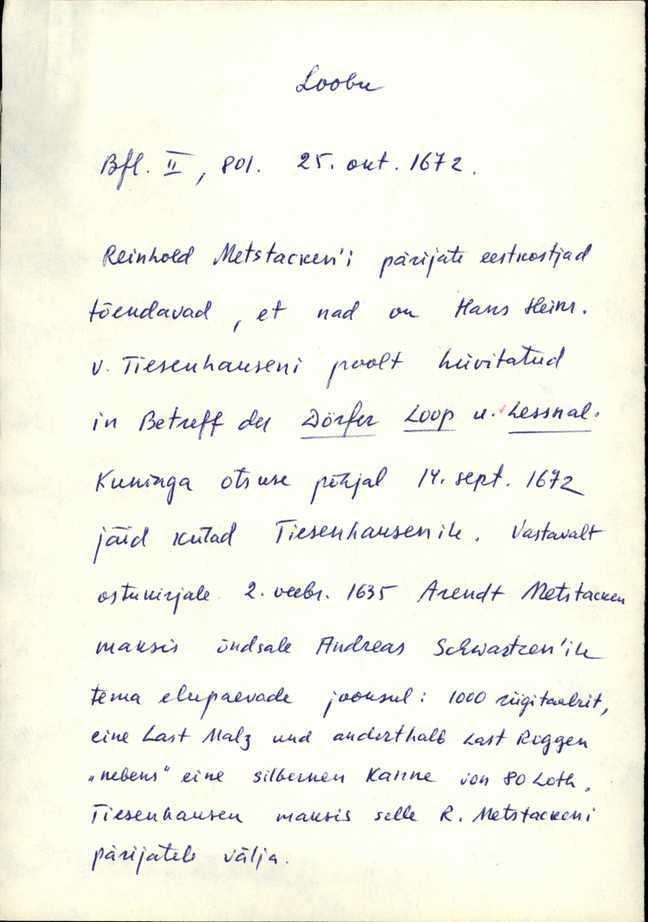 Loobu
Bfl. II, 801. 25. okt. 1672.
Reinhold Metstacken'i pärijate eestkostjad
tõendavad, et nad on Hans Heinr.
v. Tiesenhauseni poolt hüvitatud
in Betreff der Dörfer Loop u. Lessnal.
Kuninga otsuse põhjal 14. sept. 1672
jäid külad Tiesenhausenile. Vastavalt
ostukirjale 2. veebr. 1635 Arendt Metstacken
maksis õndsale Andreas Schwartzen'ile
tema elupäevade jooksul: 1000 riigitaalrit,
eine Last Malz und anderthalb Last Roggen
„nebens" eine silbernen Kanne von 80 Loth.
Tiesenhausen maksis selle R. Metstackeni
pärijatele välja.